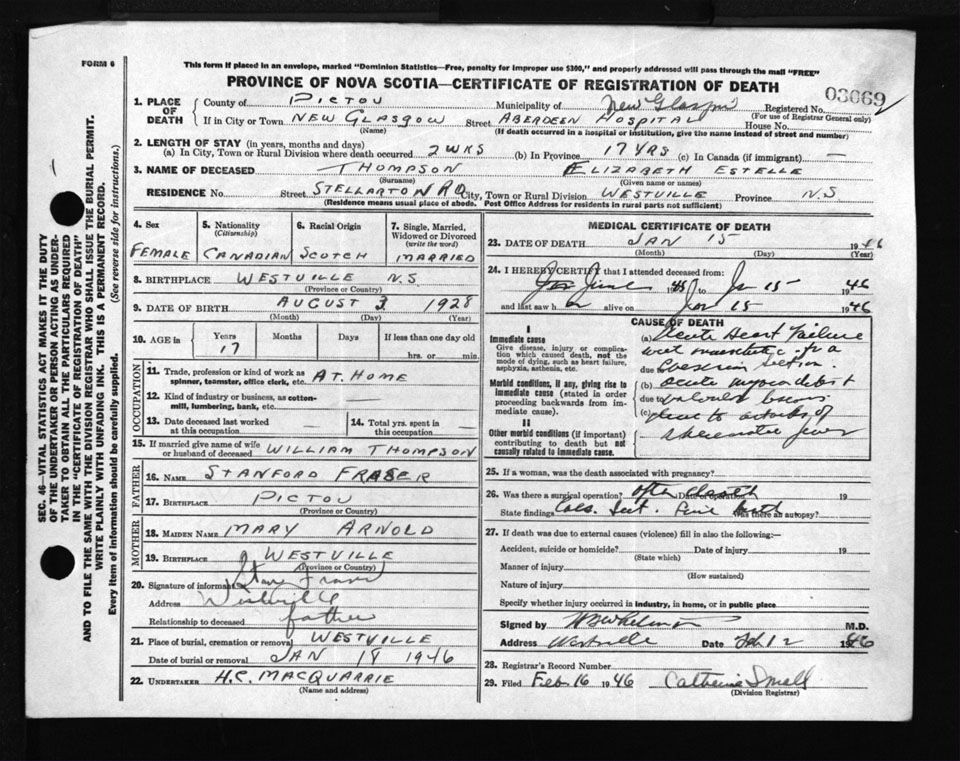 FORM 6
This form if placed in an envelope, marked "Dominion Statistics—Free, penalty for improper use $300," and properly addressed will pass through the mail "FREE"
PROVINCE OF NOVA SCOTIA—CERTIFICATE OF REGISTRATION OF DEATH
03069
1. PLACE OF DEATH
County of PICTOU Municipality of New Glasgow Registered No.
(For use of Registrar General only)
If in City or Town NEW GLASGOW Street ABERDEEN HOSPITAL House No.
(Name) (If death occurred in a hospital or institution, give the name instead of street and number)
2. LENGTH OF STAY (in years, months and days)
(a) In City, Town or Rural Division where death occurred 2 WKS (b) In Province 17 YRS (c) In Canada (if immigrant) —
3. NAME OF DECEASED THOMPSON ELIZABETH ESTELLE
(Surname) (Given name or names)
RESIDENCE No. Street STELLARTON RD City, Town or Rural Division WESTVILLE Province N.S
(Residence means usual place of abode. Post Office Address for residents in rural parts not sufficient)
4. Sex
FEMALE
5. Nationality
(Citizenship)
CANADIAN
6. Racial Origin
SCOTCH
7. Single, Married, Widowed or Divorced
(write the word)
MARRIED
8. BIRTHPLACE WESTVILLE N.S.
(Province or Country)
9. DATE OF BIRTH AUGUST 3 1928
(Month) (Day) (Year)
10. AGE in
Years
17
Months
Days
If less than one day old
hrs. or min.
OCCUPATION
11. Trade, profession or kind of work as spinner, teamster, office clerk, etc. AT HOME
12. Kind of industry or business, as cotton-mill, lumbering, bank, etc.
13. Date deceased last worked at this occupation —
14. Total yrs. spent in this occupation —
15. If married give name of wife or husband of deceased WILLIAM THOMPSON
FATHER
16. NAME STANFORD FRASER
17. BIRTHPLACE PICTOU
(Province or Country)
MOTHER
18. MAIDEN NAME MARY ARNOLD
19. BIRTHPLACE WESTVILLE
(Province or Country)
20. Signature of informant Fraser
Address Westville
Relationship to deceased father
21. Place of burial, cremation or removal WESTVILLE
Date of burial or removal JAN 18 1946
22. UNDERTAKER H.C. MACQUARRIE
(Name and address)
MEDICAL CERTIFICATE OF DEATH
23. DATE OF DEATH JAN 15 1946
(Month) (Day) (Year)
24. I HEREBY CERTIFY that I attended deceased from:
1945 to Jan 15 1946
and last saw her alive on Jan 15 1946
CAUSE OF DEATH
I
Immediate cause
Give disease, injury or complication which caused death, not the mode of dying, such as heart failure, asphyxia, asthenia, etc.
Morbid conditions, if any, giving rise to immediate cause (stated in order proceeding backwards from immediate cause).
II
Other morbid conditions (if important) contributing to death but not causally related to immediate cause.
(a) Acute Heart Failure
due to Section
(b) acute
due to valvular
(c) due to attacks of
rheumatic fever
25. If a woman, was the death associated with pregnancy?
26. Was there a surgical operation? Date of operation 19
State findings Caes. Sect. Was there an autopsy?
27. If death was due to external causes (violence) fill in also the following:—
Accident, suicide or homicide? Date of injury 19
(State which)
Manner of injury
(How sustained)
Nature of injury
Specify whether injury occurred in industry, in home, or in public place
Signed by M.D.
Address Westville Date Feb 12 1946
28. Registrar's Record Number
29. Filed Feb 16 1946 Catherine Smell
(Division Registrar)
SEC. 46—VITAL STATISTICS ACT MAKES IT THE DUTY
OF THE UNDERTAKER OR PERSON ACTING AS UNDER-
TAKER TO OBTAIN ALL THE PARTICULARS REQUIRED
IN THE "CERTIFICATE OF REGISTRATION OF DEATH"
AND TO FILE THE SAME WITH THE DIVISION REGISTRAR WHO SHALL ISSUE THE BURIAL PERMIT.
WRITE PLAINLY WITH UNFADING INK. THIS IS A PERMANENT RECORD.
Every item of information should be carefully supplied. (See reverse side for instructions.)